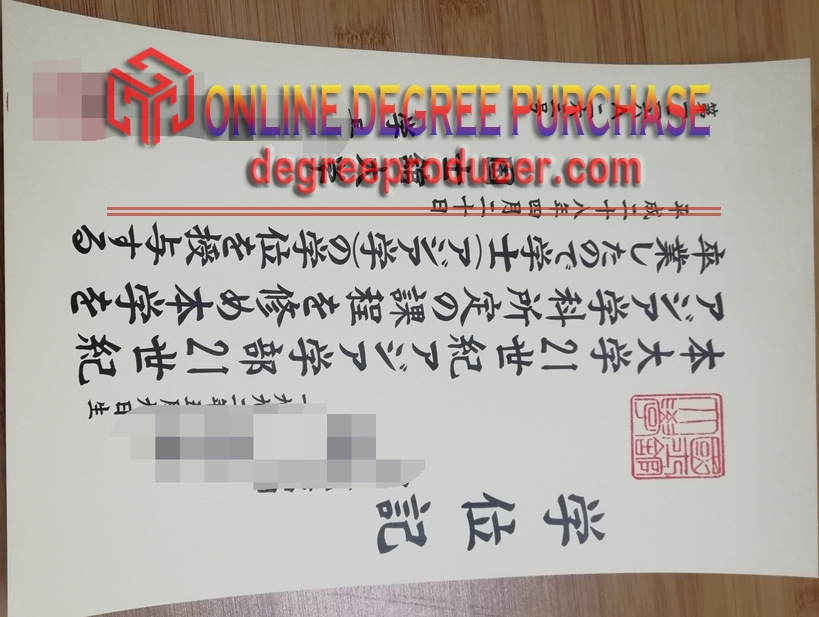 ONLINE DEGREE PURCHASE
degreeproducer.com
学位記
一九九二年五月九日生
本大学21世紀アジア学部21世紀
アジア学科所定の課程を修め本学を
卒業したので学士(アジア学)の学位を授与する
平成二十八年四月二十日
国士舘大学
学長